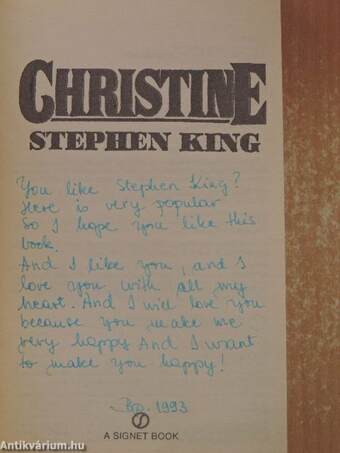 CHRISTINE
STEPHEN KING
You like Stephen King?
Here is very popular
So I hope you like this
book.
And I like you, and I
love you with all my
heart. And I will love you
because you make me
very happy And I want
to make you happy!
Bp. 1993
A SIGNET BOOK
Antikvárium.hu
antikvarium.hu